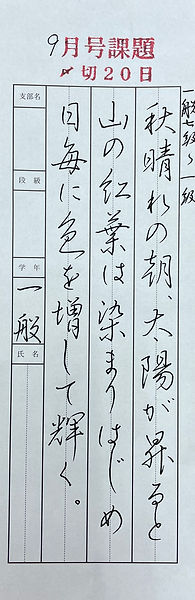 9月号課題
〆切20日
一般七級〜一級
秋晴れの朝、太陽が昇ると
山の紅葉は染まりはじめ
日毎に色を増して輝く。
支部名
段級
学年
一般
氏名